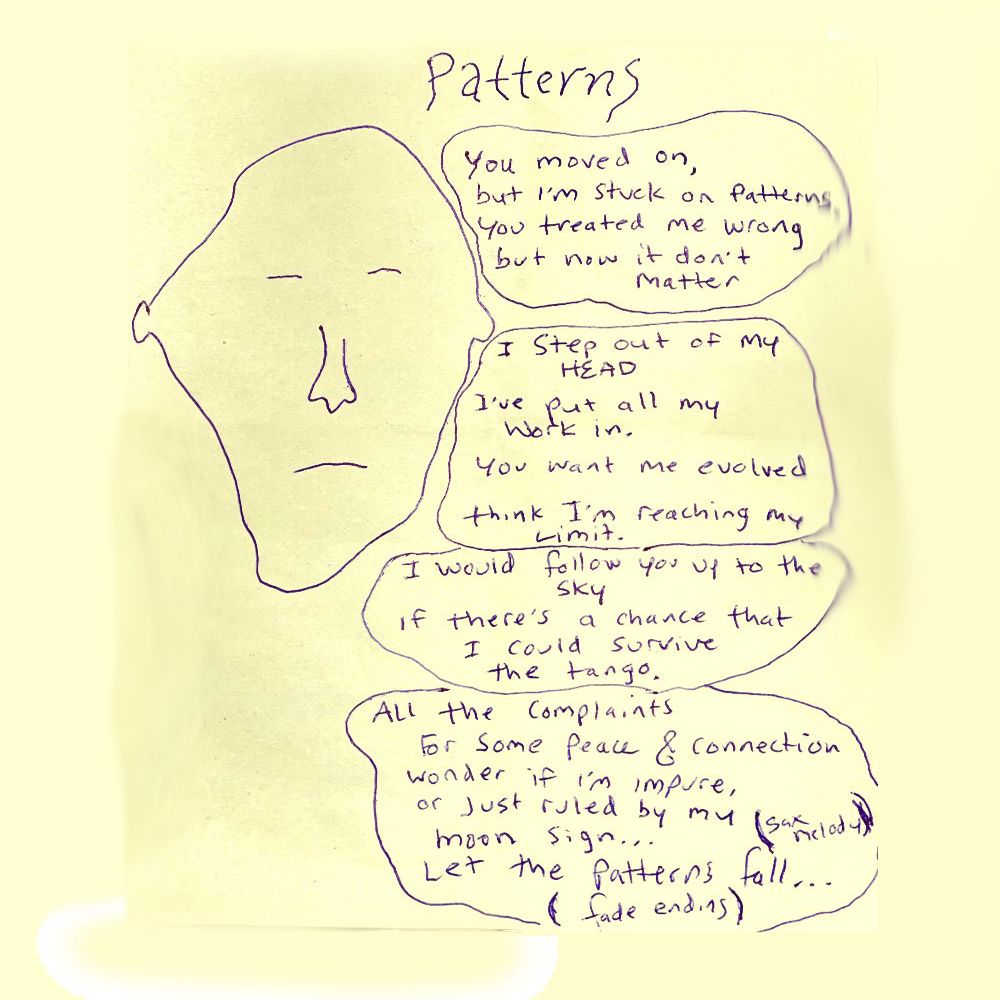 Patterns
You moved on,
but I'm stuck on Patterns,
You treated me wrong
but now it don't
matter
I step out of my
HEAD
I've put all my
work in.
You want me evolved
think I'm reaching my
Limit.
I would follow you up to the
sky
if there's a chance that
I could survive
the tango.
All the complaints
For some peace & connection
wonder if i'm impure,
or just ruled by my
moon sign...
(sax
melody)
Let the patterns fall...
( fade ending)